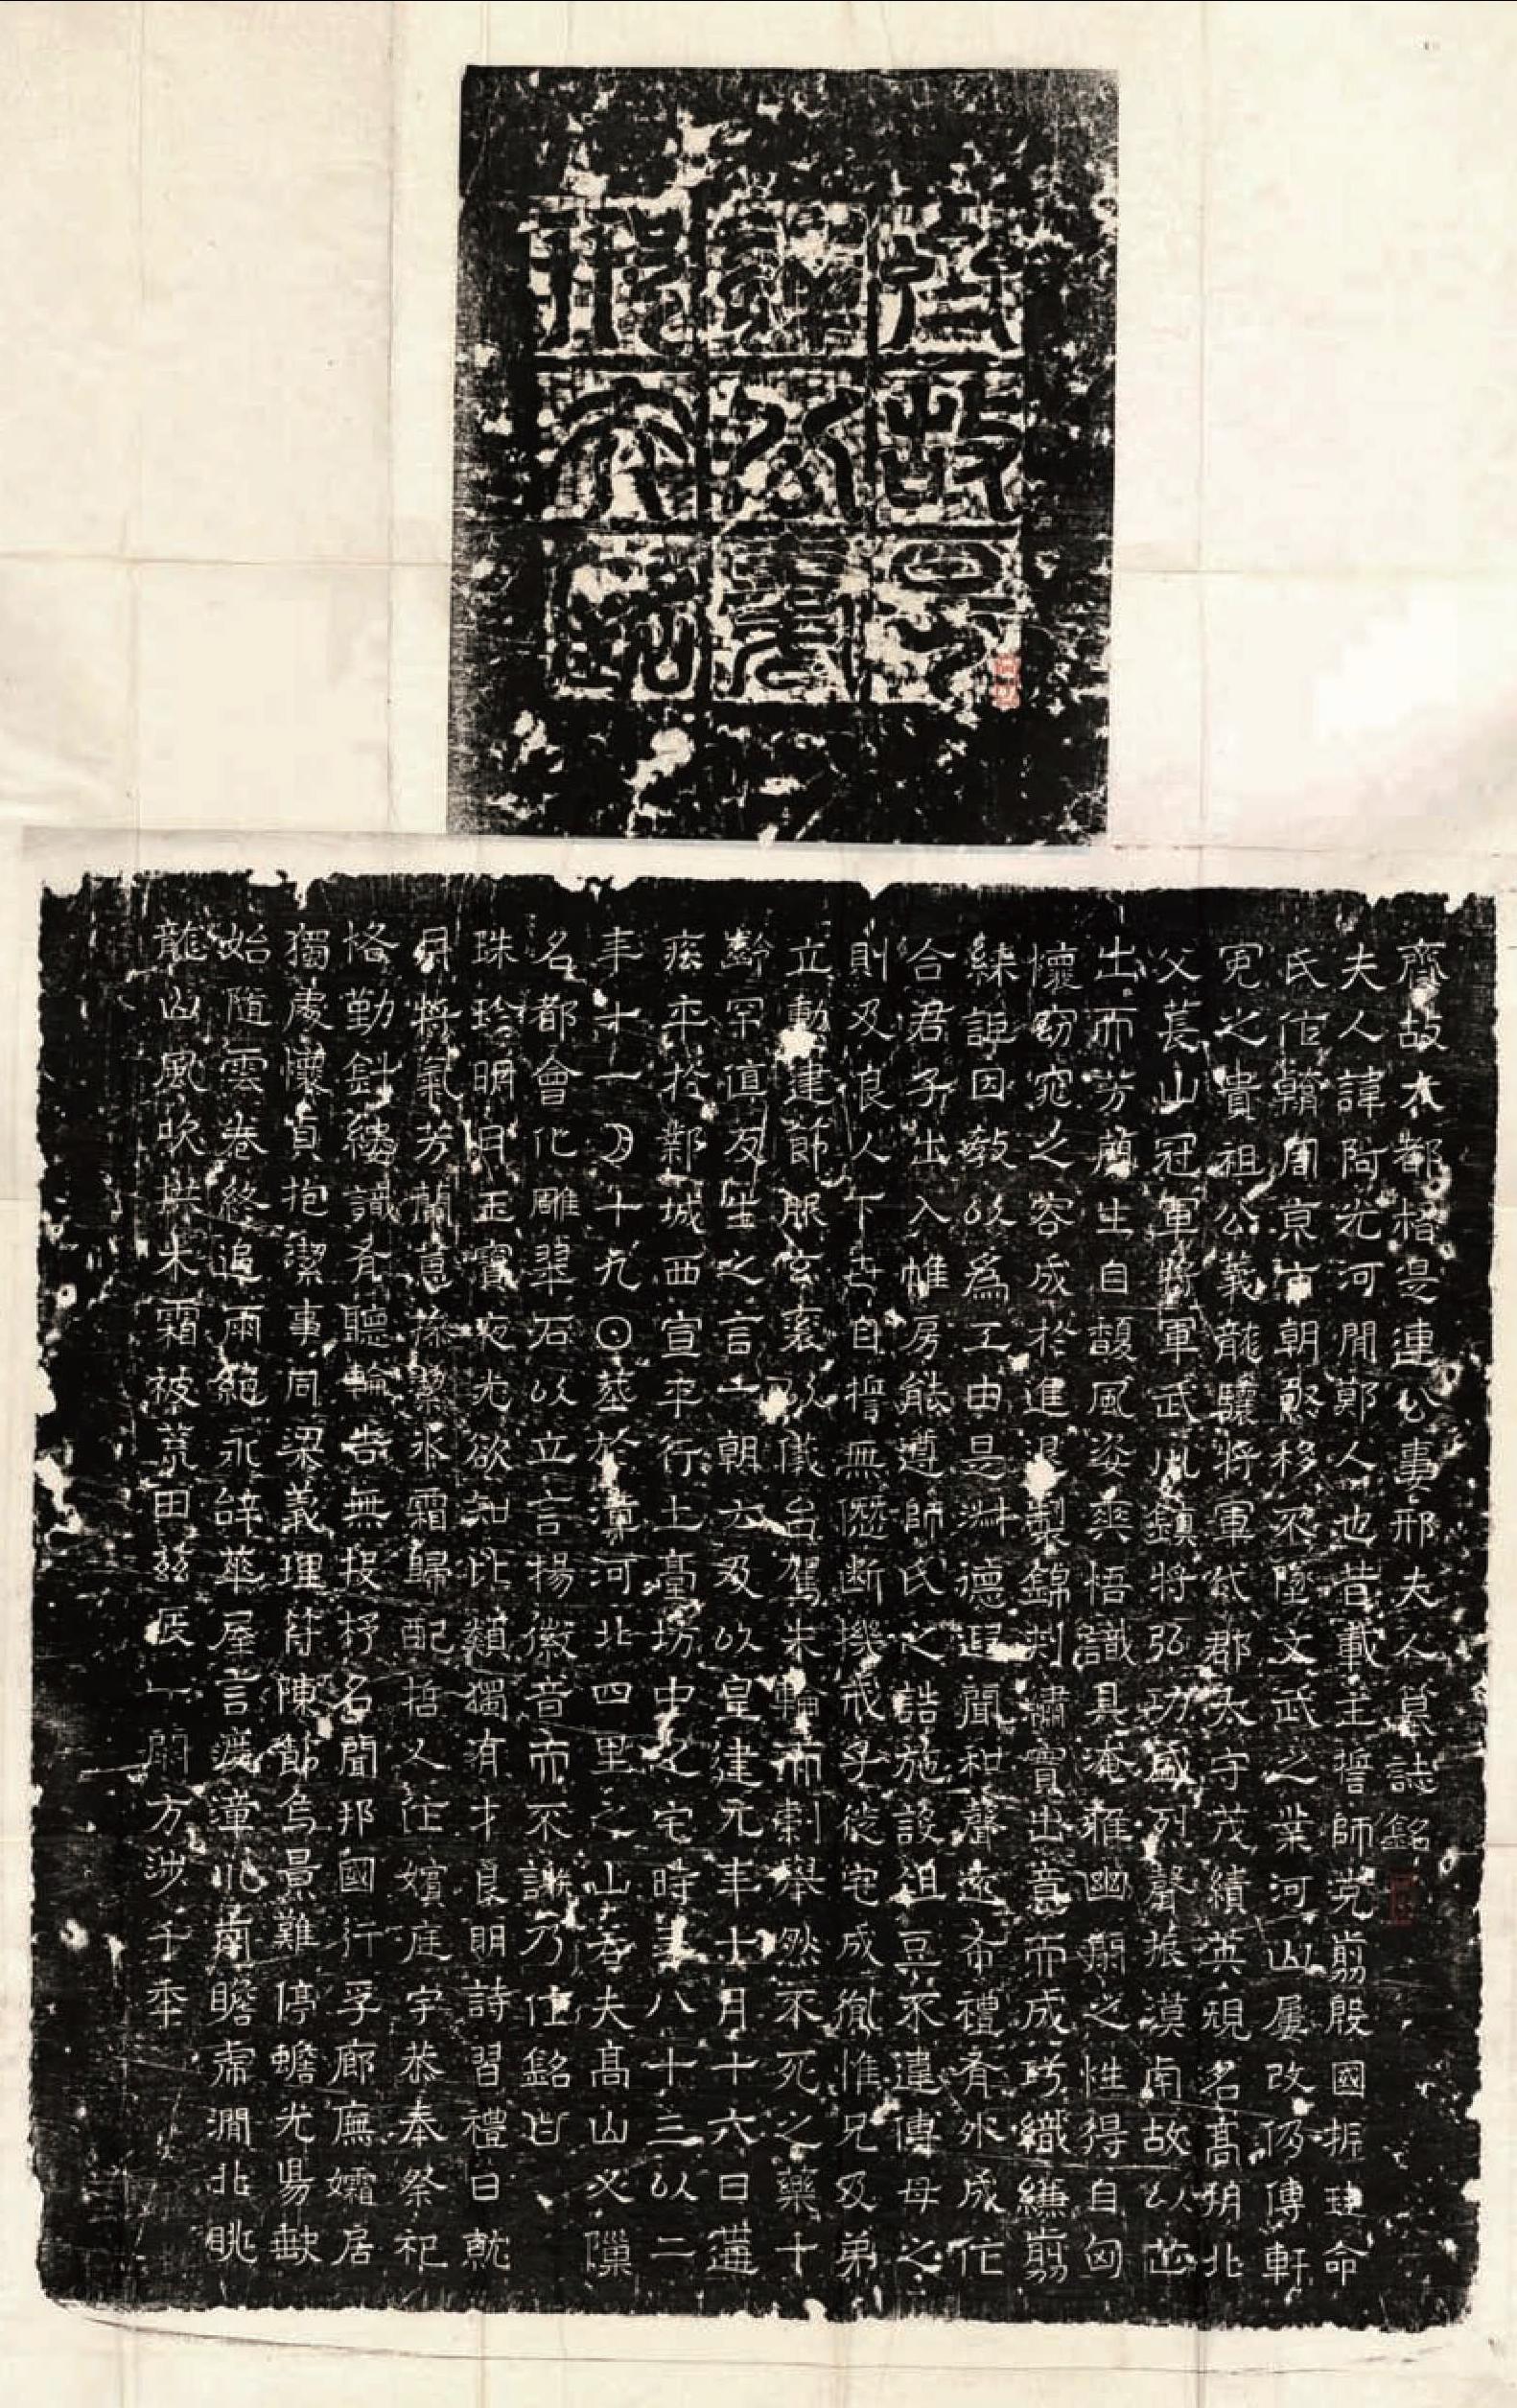 齊故是
連公妻
邢夫
齊故大都督是連公妻邢夫人墓誌銘
夫人諱阿光河間鄭人也昔載主誓師克剪殷國振珽命
氏作翰周京市朝驟移不墜文武之業河山屢改仍傳軒
冕之貴祖公義龍驤將軍代郡太守茂績英規名高朔北
父萇山冠軍將軍武川鎮將弘功盛烈聲振漠南故以芷
出而芳蘭生自馥風姿爽悟識具淹雅幽閑之性得自匈
懷窈窕之容成於進退製錦刺繡實出意而成巧織縑剪
練詎因教以為工由是淋德遐聞和聲遠布禮有外成作
合君子出入帷房能遵師氏之誥施設俎豆不違傅母之
則及良人下世自誓無愆斷機戒子徙宅成胤惟兄及弟
立勳建節服玄袞以儀台駕朱輪而舉然不死之藥十
齡罕值友生之言一朝六及以皇建元年十月十六日遘
疾卒於鄴城西宣平行土臺坊中之宅時年八十三以二
年十一月十九日葬於漳河北四里之山谷夫高山必
名都會化雕翠石以立言揚徽音而不謝乃作銘曰
珠玲明月玉寶夜光欲知比類獨有才良明詩習禮日就
月將氣芳蘭蕙操潔冰霜歸配哲人作嬪庭宇恭奉祭祀
恪勤針縷識有聽輪告無投杼名聞邦國行孚廊廡孀居
獨處懷貞抱潔事同梁義理符陳節烏景難停蟾光易缺
始隨雲卷終追雨絕永辭華屋言渡漳川南瞻帝澗北眺
龍山風吹拱木霜被荒田茲辰一閟方涉千年